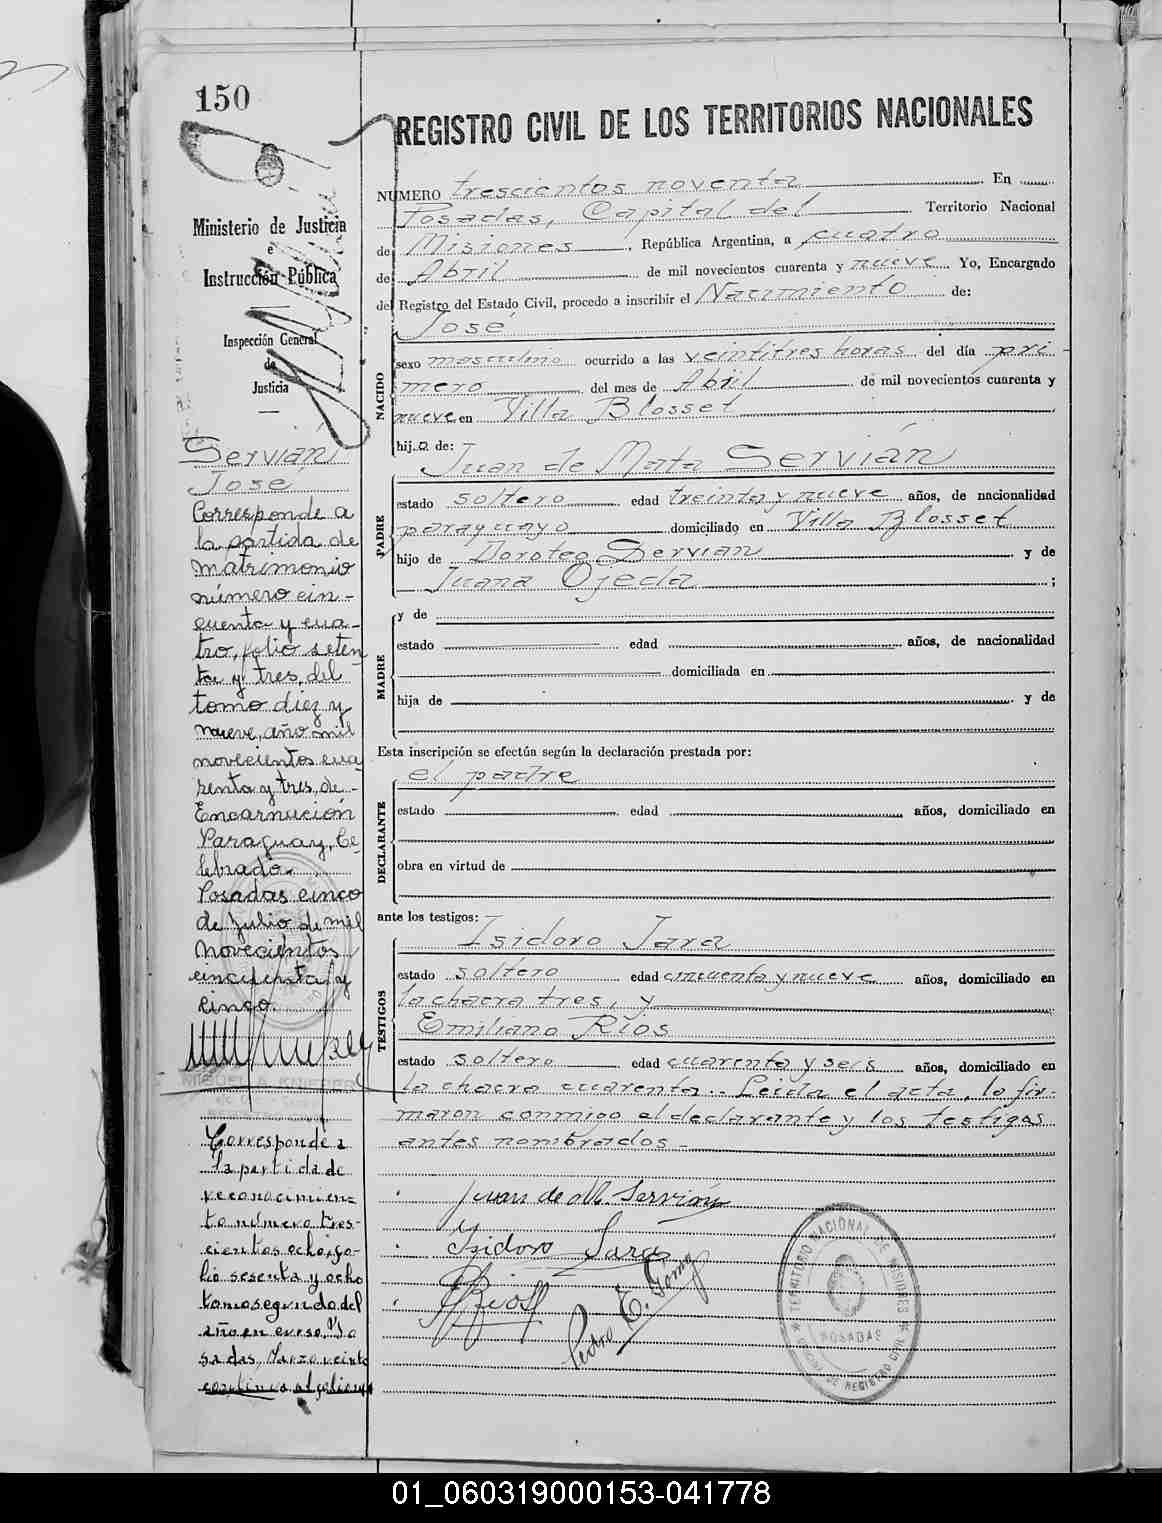 150
REGISTRO CIVIL DE LOS TERRITORIOS NACIONALES
Ministerio de Justicia
e
Instrucción Pública
Inspección General
de
Justicia
Servián,
José
Corresponde a
la partida de
matrimonio
número cin-
cuenta y cua-
tro, folio seten
ta y tres, del
tomo diez y
nueve, año mil
novecientos cua
renta y tres, de
Encarnación
Paraguay, Ce
lebrado.
Posadas cinco
de Julio de mil
novecientos
cincuenta y
cinco.
Corresponde a
la partida de
reconocimien=
to número tres-
cientos ocho, fo-
lio sesenta y ocho
tomo segundo del
año en curso. Po
sadas, Marzo veinte
continua al folio
NUMERO trescientos noventa En
Posadas, Capital del Territorio Nacional
de Misiones, República Argentina, a cuatro
de Abril de mil novecientos cuarenta y nueve Yo, Encargado
del Registro del Estado Civil, procedo a inscribir el Nacimiento de:
NACIDO
José
sexo masculino ocurrido a las veintitres horas del día pri-
mero del mes de Abril de mil novecientos cuarenta y
nueve en Villa Blosset
hijo de:
PADRE
Juan de Mata Servián
estado soltero edad treinta y nueve años, de nacionalidad
paraguayo domiciliado en Villa Blosset
hijo de Doroteo Servián y de
Juana Ojeda ;
MADRE
y de
estado edad años, de nacionalidad
domiciliada en
hija de y de
Esta inscripción se efectúa según la declaración prestada por:
DECLARANTE
el padre
estado edad años, domiciliado en
obra en virtud de
ante los testigos:
TESTIGOS
Isidoro Jara
estado soltero edad cincuenta y nueve años, domiciliado en
la chacra tres, y
Emiliano Ríos
estado soltero edad cuarenta y seis años, domiciliado en
la chacra cuarenta. Leida el acta, la fir-
maron conmigo el declarante y los testigos
antes nombrados
Juan de M. Servián
Isidoro Jara
ERios
Pedro E. Gómez
TERRITORIO NACIONAL DE MISIONES
POSADAS
OFICINA DE REGISTRO CIVIL
01_060319000153-041778